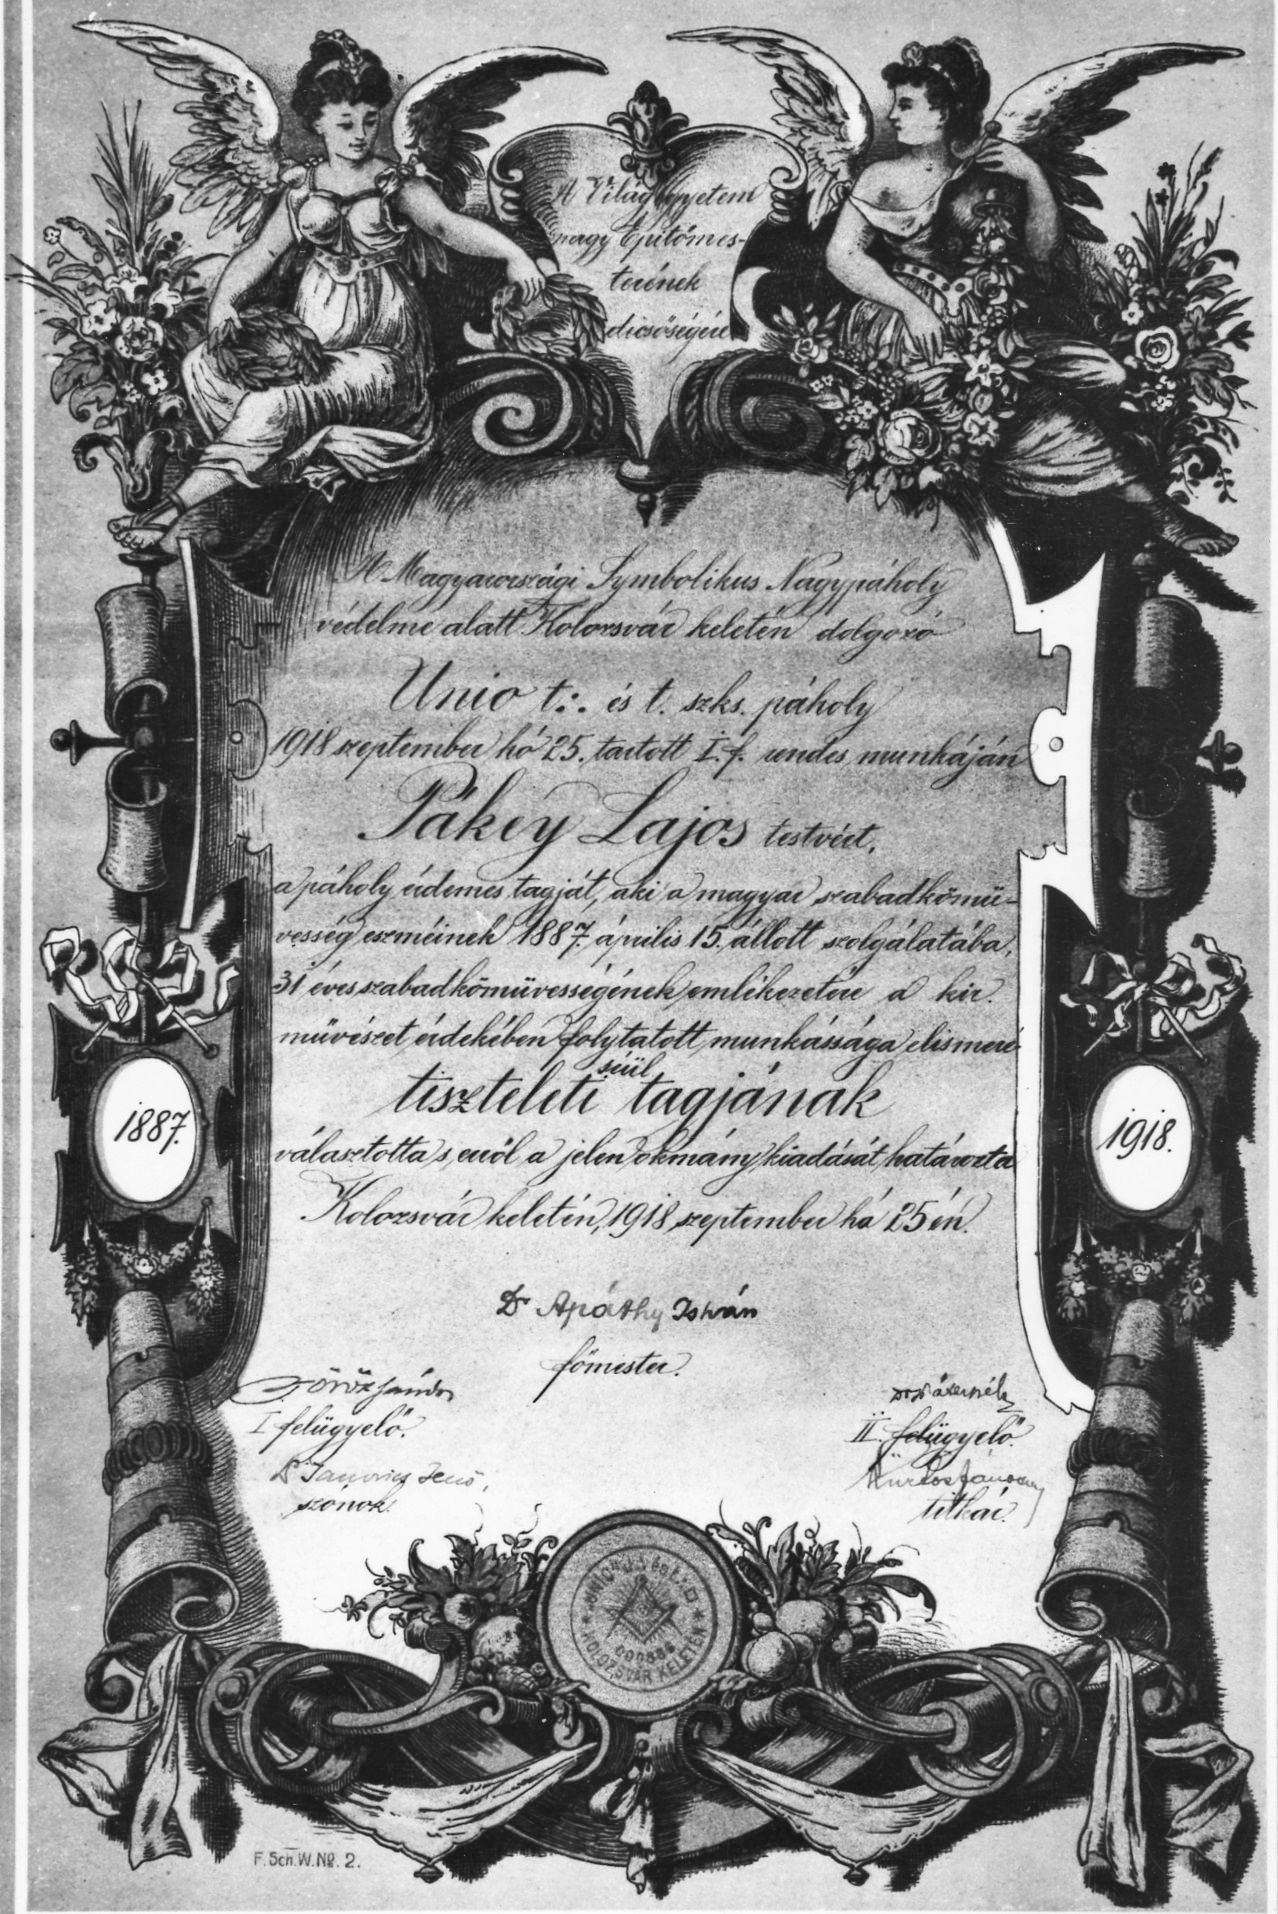 A Világegyetem
nagy Építőmes-
terének
dicsőségére
A Magyarországi Symbolikus Nagypáholy
védelme alatt Kolozsvár keletén dolgozó
Unio t∴ és t. szks. páholy
1918 szeptember hó 25. tartott I. f. rendes munkáján
Pákey Lajos testvért,
a páholy érdemes tagját, aki a magyar szabadkőmü-
vesség eszméinek 1887. április 15. állott szolgálatába,
31 éves szabadkőmüvességének emlékezetére a kir.
müvészet érdekében folytatott munkássága elismeré
séül
tiszteleti tagjának
választotta s erről a jelen okmány kiadását határozta
Kolozsvár keletén, 1918 szeptember hó 25 én.
1887.
1918.
Dr Apáthy István
főmester.
Török Sándor
I felügyelő.
II. felügyelő.
Dr Janovics Jenő,
szónok.
titkár.
KOLOZSVÁR KELETÉN
F. Sch. W. No. 2.